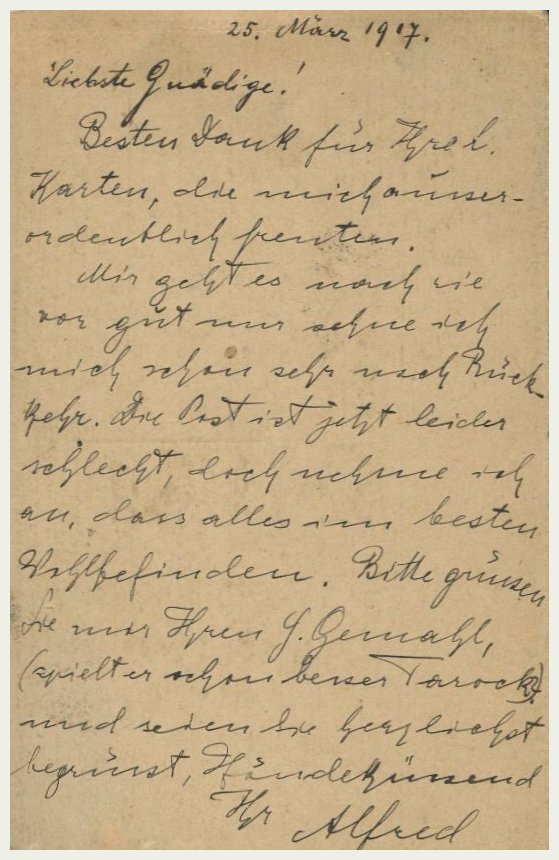 25. März 1917.
Liebste Gnädige!
Besten Dank für Ihre l.
Karten, die mich ausser-
ordentlich freuten.
Mir geht es nach wie
vor gut nur sehne ich
mich schon sehr nach Rück-
kehr. Die Post ist jetzt leider
schlecht, doch nehme ich
an, dass alles im besten
Wohlbefinden. Bitte grüssen
Sie mir Ihren H. Gemahl,
(spielt er schon besser Tarock?)
und seien Sie herzlichst
begrüsst, Händeküssend
Ihr Alfred